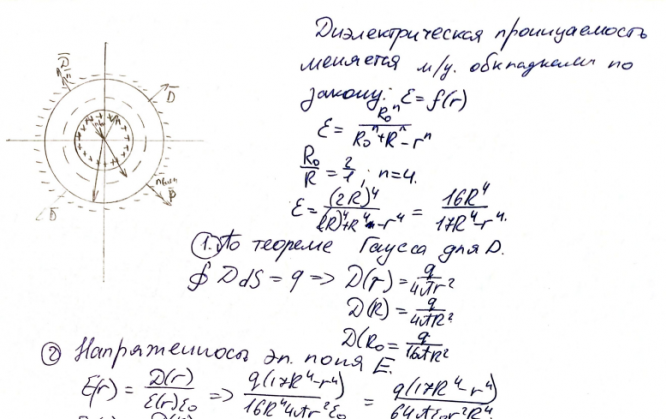 Диэлектрическая проницаемость
меняется м/у. обкладками по
закону: ε = f(r)
ε = R₀ⁿ / (R₀ⁿ + Rⁿ - rⁿ)
R₀/R = 2/1; n=4.
ε = (2R)⁴ / ((2R)⁴ + R⁴ - r⁴) = 16R⁴ / (17R⁴ - r⁴).
D̅ n̅
D̅
D̅
① По теореме Гаусса для D.
∮ D dS = q => D(r) = q / 4πr²
D(R) = q / 4πR²
D(R₀ = q / 16πR²
② Напряженность эл. поля E.
E(r) = D(r) / ε(r)ε₀ => q(17R⁴ - r⁴) / 16R⁴4πr²ε₀ = q(17R⁴ - r⁴) / 64πε₀r²R⁴.